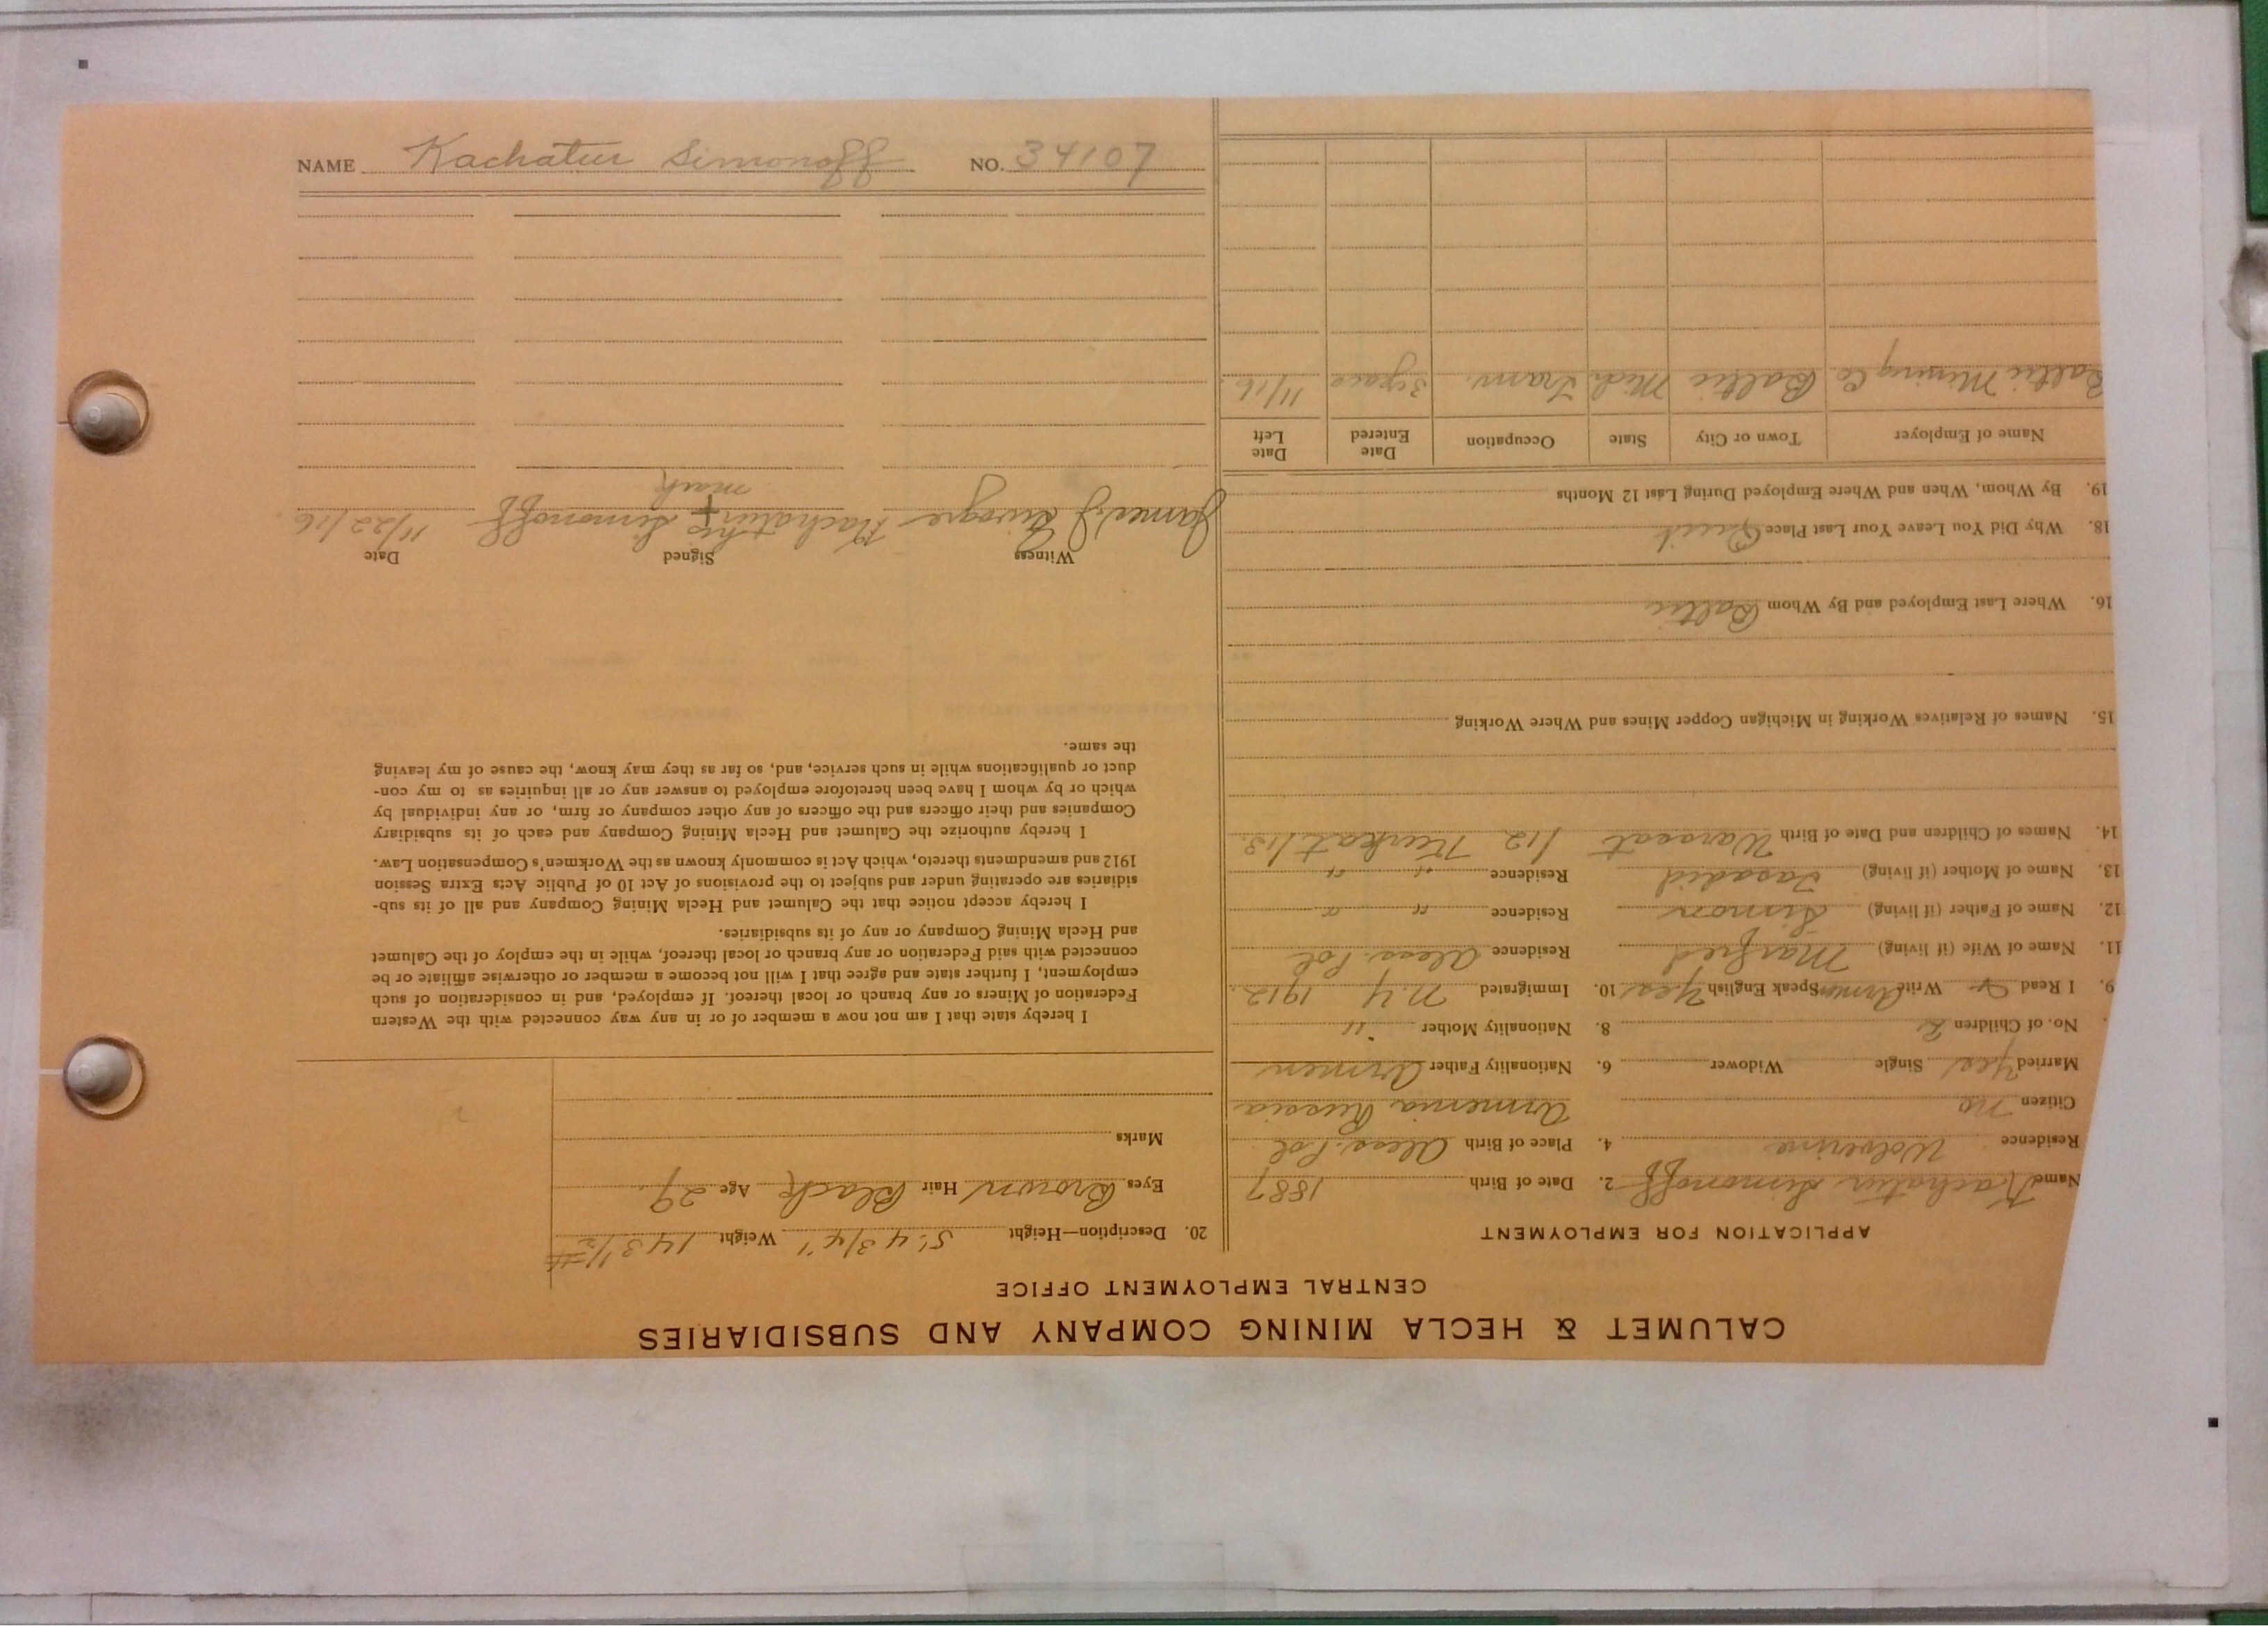 CALUMET & HECLA MINING COMPANY AND SUBSIDIARIES
CENTRAL EMPLOYMENT OFFICE
APPLICATION FOR EMPLOYMENT
Name Kachatur Simonoff 2. Date of Birth 1887
Residence Wolverine 4. Place of Birth Alexs. Pol
Armenia Russia
Citizen no
Married Yes Single Widower 6. Nationality Father Armen
No. of Children 2 8. Nationality Mother "
9. I Read Write Armen Speak English Yes 10. Immigrated N.Y. 1912
11. Name of Wife (if living) Marfred Residence Alexs. Pol
12. Name of Father (if living) Simon Residence " "
13. Name of Mother (if living) Residence " "
14. Names of Children and Date of Birth Waroeat /12 /13.
15. Names of Relatives Working in Michigan Copper Mines and Where Working
16. Where Last Employed and By Whom Baltic
18. Why Did You Leave Your Last Place Quit
19. By Whom, When and Where Employed During Last 12 Months
Name of Employer Town or City State Occupation Date Entered Date Left
Baltic Mining Co Baltic Mich Tram. 11/16
20. Description—Height 5' 4 3/4" Weight 143 1/2 #
Eyes Brown Hair Black Age 29.
Marks
I hereby state that I am not now a member of or in any way connected with the Western
Federation of Miners or any branch or local thereof. If employed, and in consideration of such
employment, I further state and agree that I will not become a member or otherwise affiliate or be
connected with said Federation or any branch or local thereof, while in the employ of the Calumet
and Hecla Mining Company or any of its subsidiaries.
I hereby accept notice that the Calumet and Hecla Mining Company and all of its sub-
sidiaries are operating under and subject to the provisions of Act 10 of Public Acts Extra Session
1912 and amendments thereto, which Act is commonly known as the Workmen's Compensation Law.
I hereby authorize the Calumet and Hecla Mining Company and each of its subsidiary
Companies and their officers and the officers of any other company or firm, or any individual by
which or by whom I have been heretofore employed to answer any or all inquiries as to my con-
duct or qualifications while in such service, and, so far as they may know, the cause of my leaving
the same.
Witness Signed Date
James J. Kachatur his + mark Simonoff 11/22/16
NAME Kachatur Simonoff NO. 34107